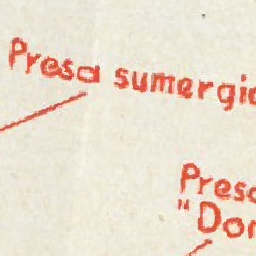 Presa sumergid
Presa
"Don